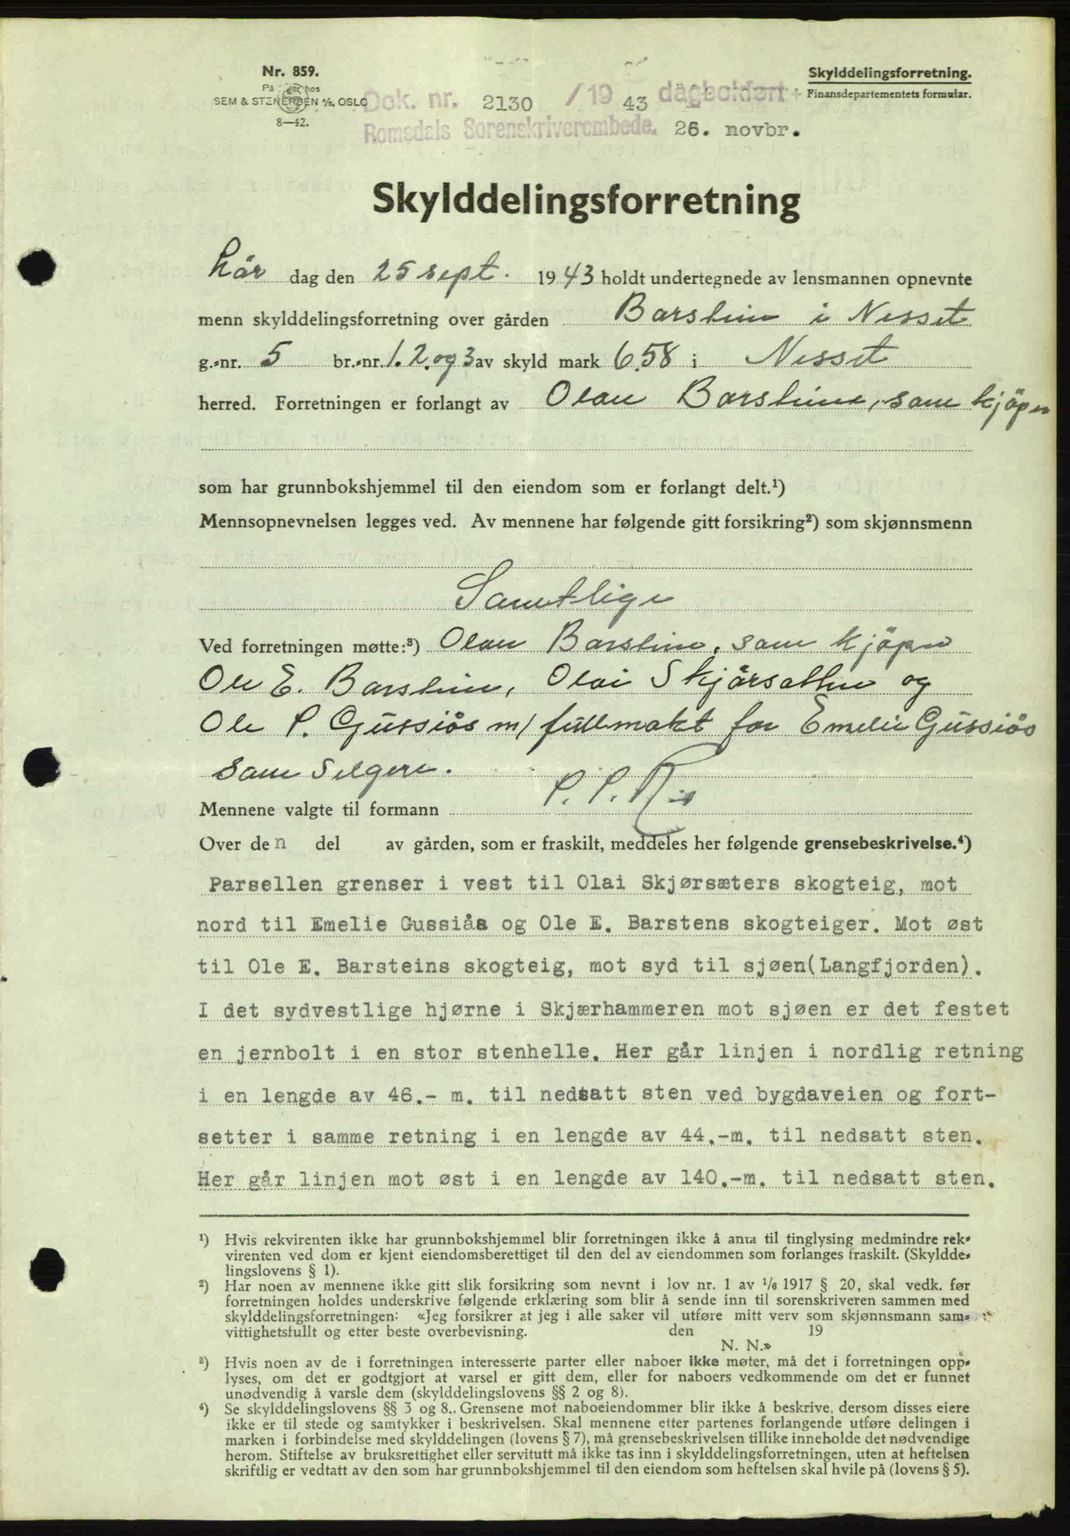 Nr. 859.
På lager hos
SEM & STENERSEN A/S, OSLO
8—42.
Dok. nr. 2130 /19 43 dagbokført
Romsdals Sorenskriverembede. 26. novbr.
Skylddelingsforretning.
Finansdepartementets formular.
Skylddelingsforretning
Lör dag den 25 sept. 1943 holdt undertegnede av lensmannen opnevnte
menn skylddelingsforretning over gården Barstein i Nesset
g.-nr. 5 br.-nr. 1. 2. og 3 av skyld mark 6,58 i Nesset
herred. Forretningen er forlangt av Olau Barstein, som kjöper
som har grunnbokshjemmel til den eiendom som er forlangt delt.¹)
Mennsopnevnelsen legges ved. Av mennene har følgende gitt forsikring²) som skjønnsmenn
Samtlige
Ved forretningen møtte:³) Olau Barstein, som kjöper
Ole E. Barstein, Olai Skjörsætter og
Ole P. Gussiös m/ fullmakt for Emelie Gussiös
som selgere.
Mennene valgte til formann P. P. Ris
Over den del av gården, som er fraskilt, meddeles her følgende grensebeskrivelse.⁴)
Parsellen grenser i vest til Olai Skjørsæters skogteig, mot
nord til Emelie Gussiås og Ole E. Barstens skogteiger. Mot øst
til Ole E. Barsteins skogteig, mot syd til sjøen(Langfjorden).
I det sydvestlige hjørne i Skjærhammeren mot sjøen er det festet
en jernbolt i en stor stenhelle. Her går linjen i nordlig retning
i en lengde av 46.- m. til nedsatt sten ved bygdaveien og fort-
setter i samme retning i en lengde av 44.-m. til nedsatt sten.
Her går linjen mot øst i en lengde av 140.-m. til nedsatt sten.
¹) Hvis rekvirenten ikke har grunnbokshjemmel blir forretningen ikke å anta til tinglysing medmindre rek-
virenten ved dom er kjent eiendomsberettiget til den del av eiendommen som forlanges fraskilt. (Skyldde-
lingslovens § 1).
²) Har noen av mennene ikke gitt slik forsikring som nevnt i lov nr. 1 av 1/6 1917 § 20, skal vedk. før
forretningen holdes underskrive følgende erklæring som blir å sende inn til sorenskriveren sammen med
skylddelingsforretningen: «Jeg forsikrer at jeg i alle saker vil utføre mitt verv som skjønnsmann sam-
vittighetsfullt og etter beste overbevisning. den 19
N. N.»
³) Hvis noen av de i forretningen interesserte parter eller naboer ikke møter, må det i forretningen opp-
lyses, om det er godtgjort at varsel er gitt dem, eller for naboers vedkommende om det er funnet
unødvendig å varsle dem (skylddelingslovens §§ 2 og 8).
⁴) Se skylddelingslovens §§ 3 og 8. Grensene mot naboeiendommer blir ikke å beskrive, dersom disses eiere
ikke er til stede og samtykker i beskrivelsen. Skal mennene etter partenes forlangende utføre delingen i
marken i forbindelse med skylddelingen (lovens § 7), må grensebeskrivelsen tillike inneholde det nødvendige
herom. Stiftelse av bruksrettighet eller servitutt må ikke tas inn i skylddelingsforretningen, uten at heftelsen
skriftlig er vedtatt av den som har grunnbokshjemmel til den eiendom som heftelsen skal hvile på (lovens § 5).